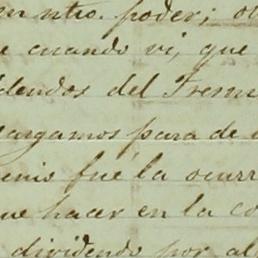 ntro. poder;
e cuando vi, que
dendos del
argamos para de
fué la ocurr
que hacer en la co
dividendo por al